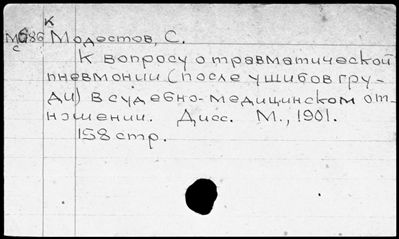 К
М686 Модестов, С.
с
К вопросу о травматической
пневмонии (после ушибов гру-
ди) в судебно-медицинском от-
ношении. Дисс. М., 1901.
158 стр.